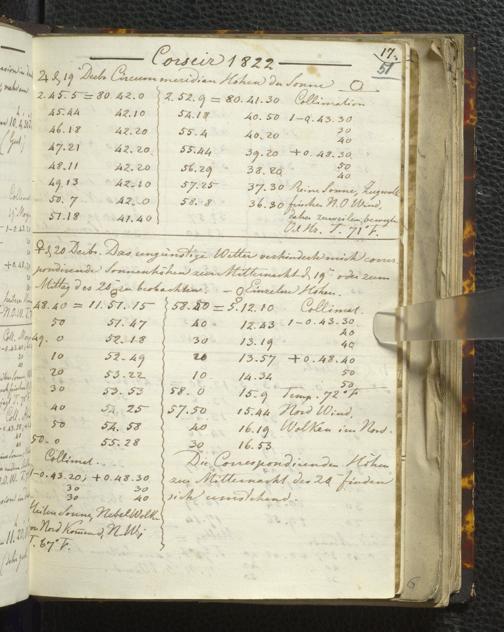 17.
51
Cosseir 1822
♃ d. 19 Decbr. Circummeridian Höhen der Sonne
2.45.5 = 80.42.0
45.44 42.10
46.18 42.20
47.21 42.20
48.11 42.20
49.13 42.10
50.7 42.0
51.18 41.40
2.52.9 = 80.41.30 Collimation
54.18 40.50 1-0.43.30
55.4 40.20 30
40
55.44 39.20 +0.48.30
56.29 38.20 50
40
57.25 37.30 Reine Sonne,
58.8 36.30 frischer N.O Wind,
daher zuweilen
T. 71° F.
♀ d. 20 Decbr. Das ungünstige Wetter verhinderte mich corres
pondirende Sonnenhöhen zum Mitternacht d. 19 oder zum
Mittag des 20 zu beobachten: — Einzelne Höhen.
48.40 = 11.51.15
50 51.47
49.0 52.18
10 52.49
20 53.22
30 53.53
40 54.25
50 54.58
50.0 55.28
Collimat.
-0.43.20; +0.48.30
30 30
30 40
Sonne, Nebel Wolken
Nord
T. 67° F.
58.50 = 5.12.10 Collimat.
40 12.43 1-0.43.30
30 13.19 40
40
20 13.57 +0.48.40
10 14.34 50
50
58.0 15.9 Temp. 72° F
57.50 15.44 Nord Wind,
40 16.19 Wolken im Nord.
30 16.53
Die Correspondirenden Höhen
zur Mitternacht des 20 finden
sich umstehend.
6